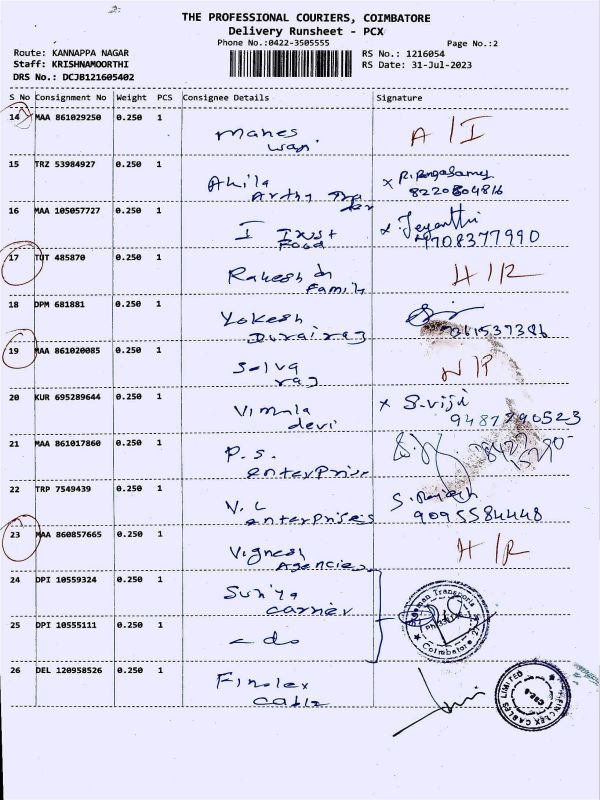 THE PROFESSIONAL COURIERS, COIMBATORE
Delivery Runsheet - PCX
Phone No.:0422-3505555
Page No.:2
Route: KANNAPPA NAGAR
Staff: KRISHNAMOORTHI
DRS No.: DCJB121605402
RS No.: 1216054
RS Date: 31-Jul-2023
S No Consignment No Weight PCS Consignee Details Signature
14 MAA 861029250 0.250 1
Mahes
wari
A/I
15 TRZ 53984927 0.250 1
Akila
Arthy
R. Rengasamy
8220804816
16 MAA 105057727 0.250 1
I Trust
Food
x Jeyanthi
9708377990
17 TUT 485870 0.250 1
Rakesh
Family
H/R
18 DPM 681881 0.250 1
Yokesh
Durairaj
19 MAA 861020085 0.250 1
Selva
raj
N/P
20 KUR 695289644 0.250 1
Vimala
devi
x S. viji
9487790523
21 MAA 861017860 0.250 1
P. S.
enterprise
22 TRP 7549439 0.250 1
V. L
enterprises
S. Rajesh
9095584448
23 MAA 860857665 0.250 1
Vignesh
Agencies
H/R
24 DPI 10559324 0.250 1
Surya
carrier
25 DPI 10555111 0.250 1
do
Transports
Coimbatore
26 DEL 120958526 0.250 1
Finolex
Cable
FINOLEX CABLES LIMITED